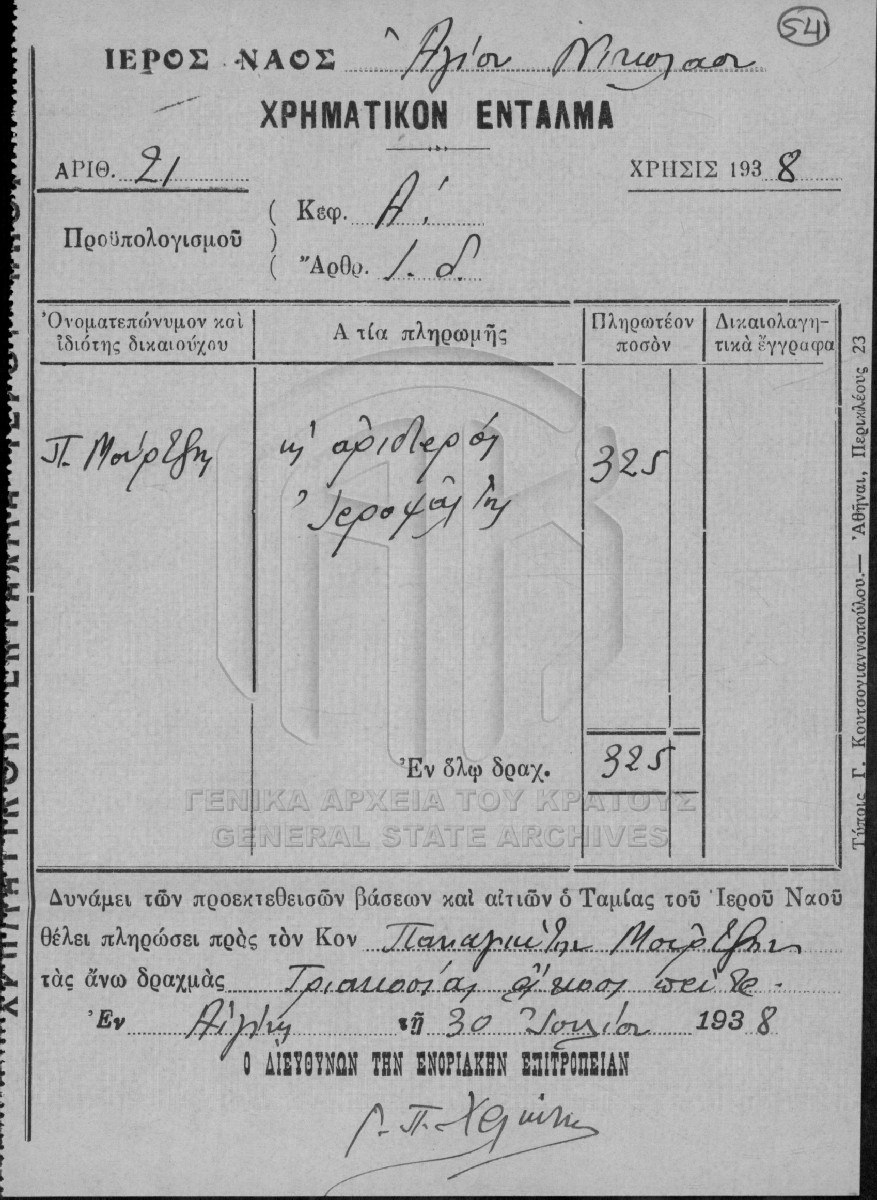 54
ΙΕΡΟΣ ΝΑΟΣ Ἁγίου Νικολάου
ΧΡΗΜΑΤΙΚΟΝ ΕΝΤΑΛΜΑ
ΑΡΙΘ. 21 ΧΡΗΣΙΣ 1938
Προϋπολογισμοῦ
Κεφ. Α΄.
Ἄρθρ. 1. δ.
Ὀνοματεπώνυμον καὶ ἰδιότης δικαιούχου
Α τία πληρωμῆς
Πληρωτέον ποσὸν
Δικαιολαγητικὰ ἔγγραφα
Π. Μούρτζης ἀριστερός 325
Ἱεροψάλτης
Ἐν ὅλῳ δραχ. 325
ΓΕΝΙΚΑ ΑΡΧΕΙΑ ΤΟΥ ΚΡΑΤΟΥΣ
GENERAL STATE ARCHIVES
Δυνάμει τῶν προεκτεθεισῶν βάσεων καὶ αἰτιῶν ὁ Ταμίας τοῦ Ἱεροῦ Ναοῦ
θέλει πληρώσει πρὸς τὸν Κον Παναγιώτην Μούρτζην
τὰς ἄνω δραχμὰς Τριακοσίας εἴκοσι πέντε.
Ἐν Αἰγίνῃ τῇ 30 Ἰουλίου 1938
Ο ΔΙΕΥΘΥΝΩΝ ΤΗΝ ΕΝΟΡΙΑΚΗΝ ΕΠΙΤΡΟΠΕΙΑΝ
Τύποις Γ. Κουτσογιαννοπούλου.— Ἀθῆναι, Περικλέους 23